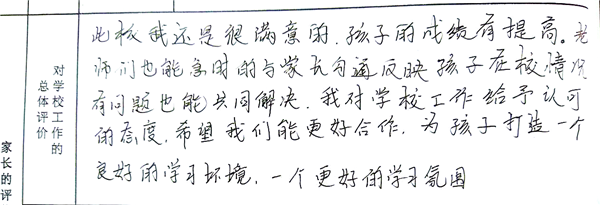 此校我还是很满意的，孩子的成绩有提高。老
师们也能急时的与家长勾通反映孩子在校情况
有问题也能共同解决，我对学校工作给予认可
的态度，希望我们能更好合作，为孩子打造一个
良好的学习环境，一个更好的学习氛围
对学校工作的
总体评价
家长的评